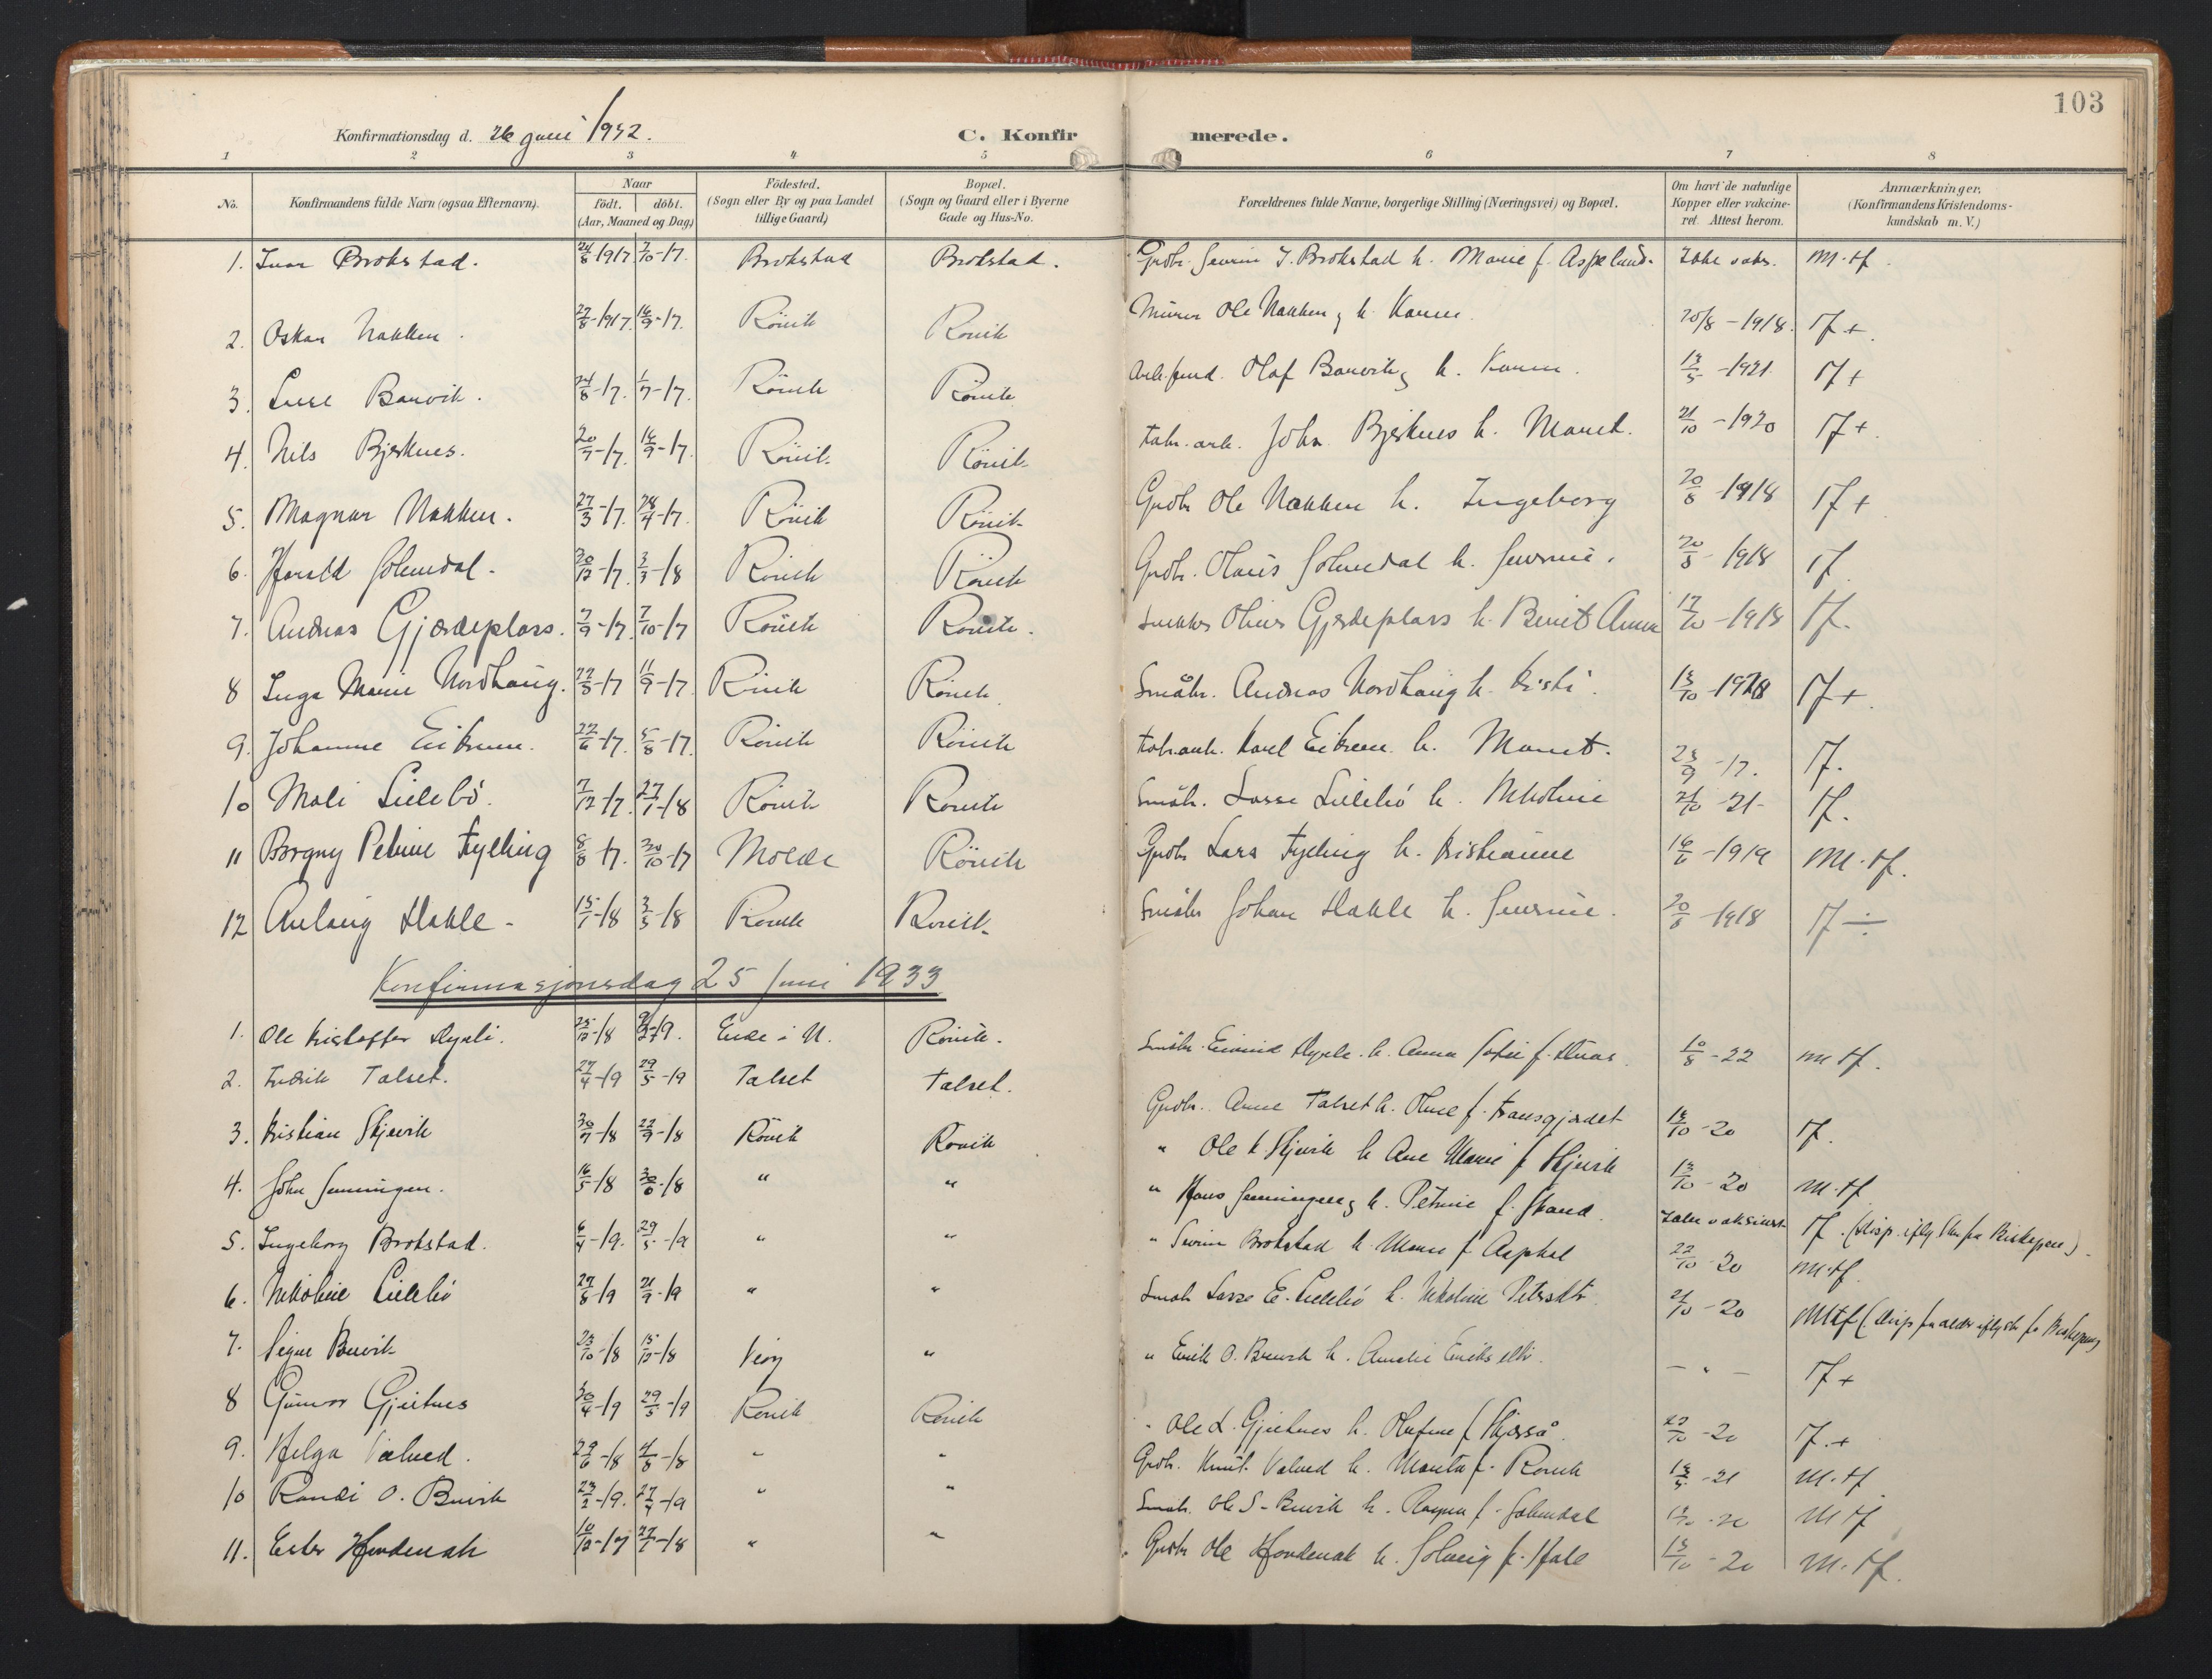 103
Konfirmationsdag d. 26 juni 1932. C. Konfirmerede.
1 2 3 4 5 6 7 8
No. Konfirmandens fulde Navn (ogsaa Efternavn). Naar födt. döbt. (Aar, Maaned og Dag) Födested. (Sogn eller By og paa Landet tillige Gaard) Bopæl. (Sogn og Gaard eller i Byerne Gade og Hus-No. Forældrenes fulde Navne, borgerlige Stilling (Næringsvei) og Bopæl. Om havt de naturlige Kopper eller vakcineret. Attest herom. Anmærkninger. (Konfirmandens Kristendomskundskab m. V.)
1. Ivar Brokstad. 24/8-1917 7/10-17. Brokstad Brokstad. Grdbr. J. Brokstad h. Marie f. Aspelund. Ikke vaks. M.tf.
2. Oskar Nakken. 27/8-1917. 16/9-17. Rövik Rövik Murer Ole Nakken, h. Karen. 20/8-1918. tf+
3. Banvik. Rövik Rövik Olaf Banvik h. Karen. 13/5-1921. tf+
4. Nils Bjerknes. 20/7-17. 16/9-17. Rövik Rövik Fabr.arb. John Bjerknes h. Marit. 21/10-1920 tf+.
5. Magnar Nakken. 27/3-17. 28/4-17. Rövik Rövik Grdbr Ole Nakken h. Ingeborg 20/8-1918 tf+
6. Harald Solemdal. 30/12-17. 3/3-18 Rövik Rövik Grdbr. Olaus Solemdal h. 20/8-1918 tf
7. Andreas Gjærdeplass. 7/9-17. 7/10-17 Rövik Rövik. Snekker Gjerdeplass h. Berit Anna -1918 tf.
8 Inga Marie Nordhaug. 22/8-17 11/9-17 Rövik Rövik Småbr. Andreas Nordhaug h. Kristi. 13/10-1918 tf+.
9. Johanne Eikrem. 22/6-17. 5/8-17. Rövik Rövik Fabr.arb. Karl Eikrem h. Marit. 23/9-17. tf.
10 Mali Lillebö. 7/12-17. 27/1-18 Rövik Rövik Småbr. Lasse Lillebö h. Nikoline 21/10-21- tf.
11 Borgny Petrine Fylling 8/8-17. 30/10-17 Molde Rövik Grdbr Lars Fylling h. Kristianne 16/6-1919 M.tf.
12 Aslaug Hakle- 15/1-18 3/5-18 Rövik Rövik Småbr Johan Hakle h. 20/8-1918 tf ÷
Konfirmasjonsdag 25 Juni 1933
1. Ole Kristoffer 25/12-18 Eide i N. Rövik. Småbr. Eivind h. Anna f. 10/8-22 m tf.
2. Fredrik Talset. 27/4-19 29/5-19 Talset Talset. Grdbr. Arne Talset h. Oline f. Fransgjerdet 13/10-20 tf.
3. Kristian Skjevik 30/7-18 22/9-18 Rövik Rövik " Ole K Skjevik h Ane Marie f Skjevik 13/10-20 m.tf
4. John Henningsen. 16/5-18 30/6-18 " " " Hans Henningsen, h. Petrine f. Strand. Ikke vaksinert tf.
5. Ingeborg Brokstad. 6/4-19. 29/5-19 " " " Brokstad h. Marie f. 22/10-20 m.tf.
6. Nikoline Lillebö 27/8-19 21/9-19 " " Småbr Lasse E. Lillebö h. Nikoline Petersdtr. 21/10-20 Mtf
7. Signe Buvik 23/10-18 15/12-18 Veøy " " Erik O. Buvik h. Amalie Eriksdtr. - " - tf+
8 Gunvor Gjeitnes 30/4-19 29/5-19 Rövik Rövik " Ole L. Gjeitnes h. Olufine f. -20 tf.+
9. Helga Valved. 29/6-18 4/8-18 " " Grdbr. Knut Valved h. Marita f. Rövik -21 m.tf
10 Randi O. Buvik 23/2-19. 27/4-19 " " Småbr. Ole S. Buvik h. f. Solemdal M tf
11. Ester Hovdenak 10/12-17 27/1-18 " " Grdbr Ole Hovdenak h. Solveig f. 13/10-20 m.tf.